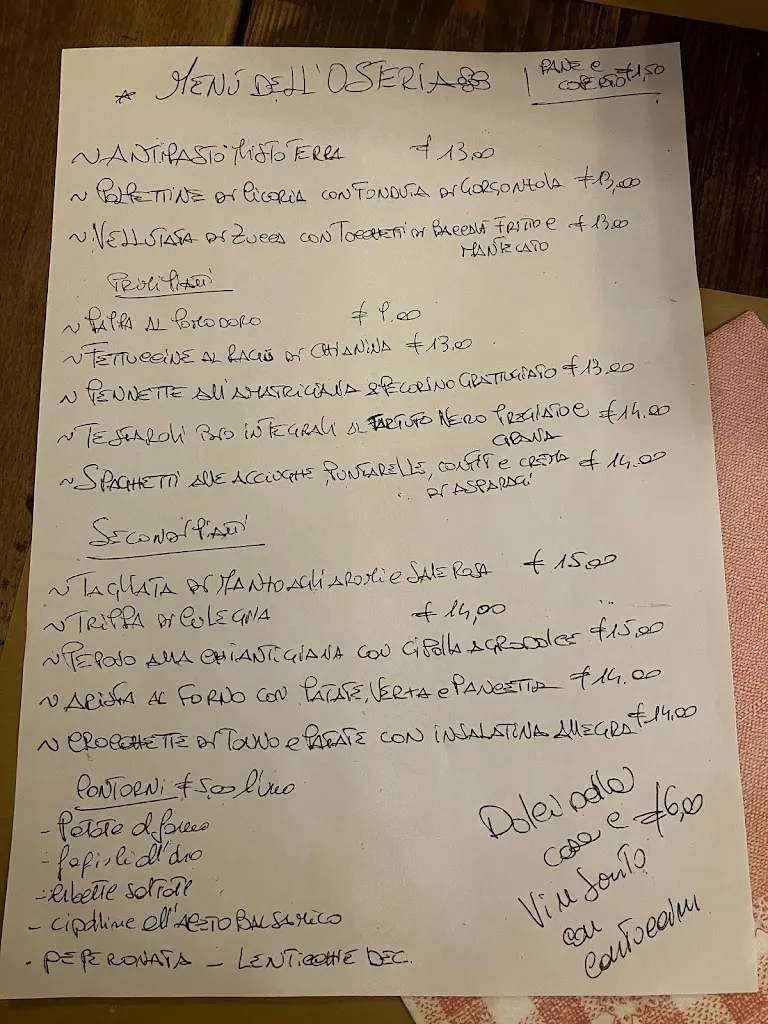 * MENÙ DELL'OSTERIA
PANE e
COPERTO €1,50
~ ANTIPASTO MISTO TERRA € 13,00
~ POLPETTINE DI CICORIA CON FONDUTA DI GORGONZOLA €13,00
~ VELLUTATA DI ZUCCA CON TOCCHETTI DI BACCALÀ FRITTO E € 13.00
MANTECATO
PRIMI PIATTI
~ PAPPA AL POMODORO € 9.00
~ FETTUCCINE AL RAGÙ DI CHIANINA €13.00
~ PENNETTE ALL'AMATRICIANA & PECORINO GRATTUGIATO €13.00
~ TESTAROLI BIO INTEGRALI AL TARTUFO NERO PREGIATO E €14.00
GRANA
~ SPAGHETTI ALLE ACCIUGHE, PUNTARELLE, CONFIT e CREMA € 14.00
DI ASPARAGI
SECONDI PIATTI
~ TAGLIATA DI MANZO AGLI AROMI e SALE ROSA € 15,00
~ TRIPPA DI € 14,00
~ PEPOSO ALLA CHIANTIGIANA CON CIPOLLA AGRODOLCE €15,00
~ ARISTA AL FORNO CON PATATE, VERZA e PANCETTA €14.00
~ CROCCHETTE DI TONNO e PATATE CON INSALATINA ALLEGRA €14.00
CONTORNI €5,00 l'uno
- Patate al forno
- fagioli all'olio
- erbette saltate
- cipolline all'ACETO BALSAMICO
- PEPERONATA - LENTICCHIE DEC.
Dolci della
casa e €6,00
Vin Santo
con
Cantuccini